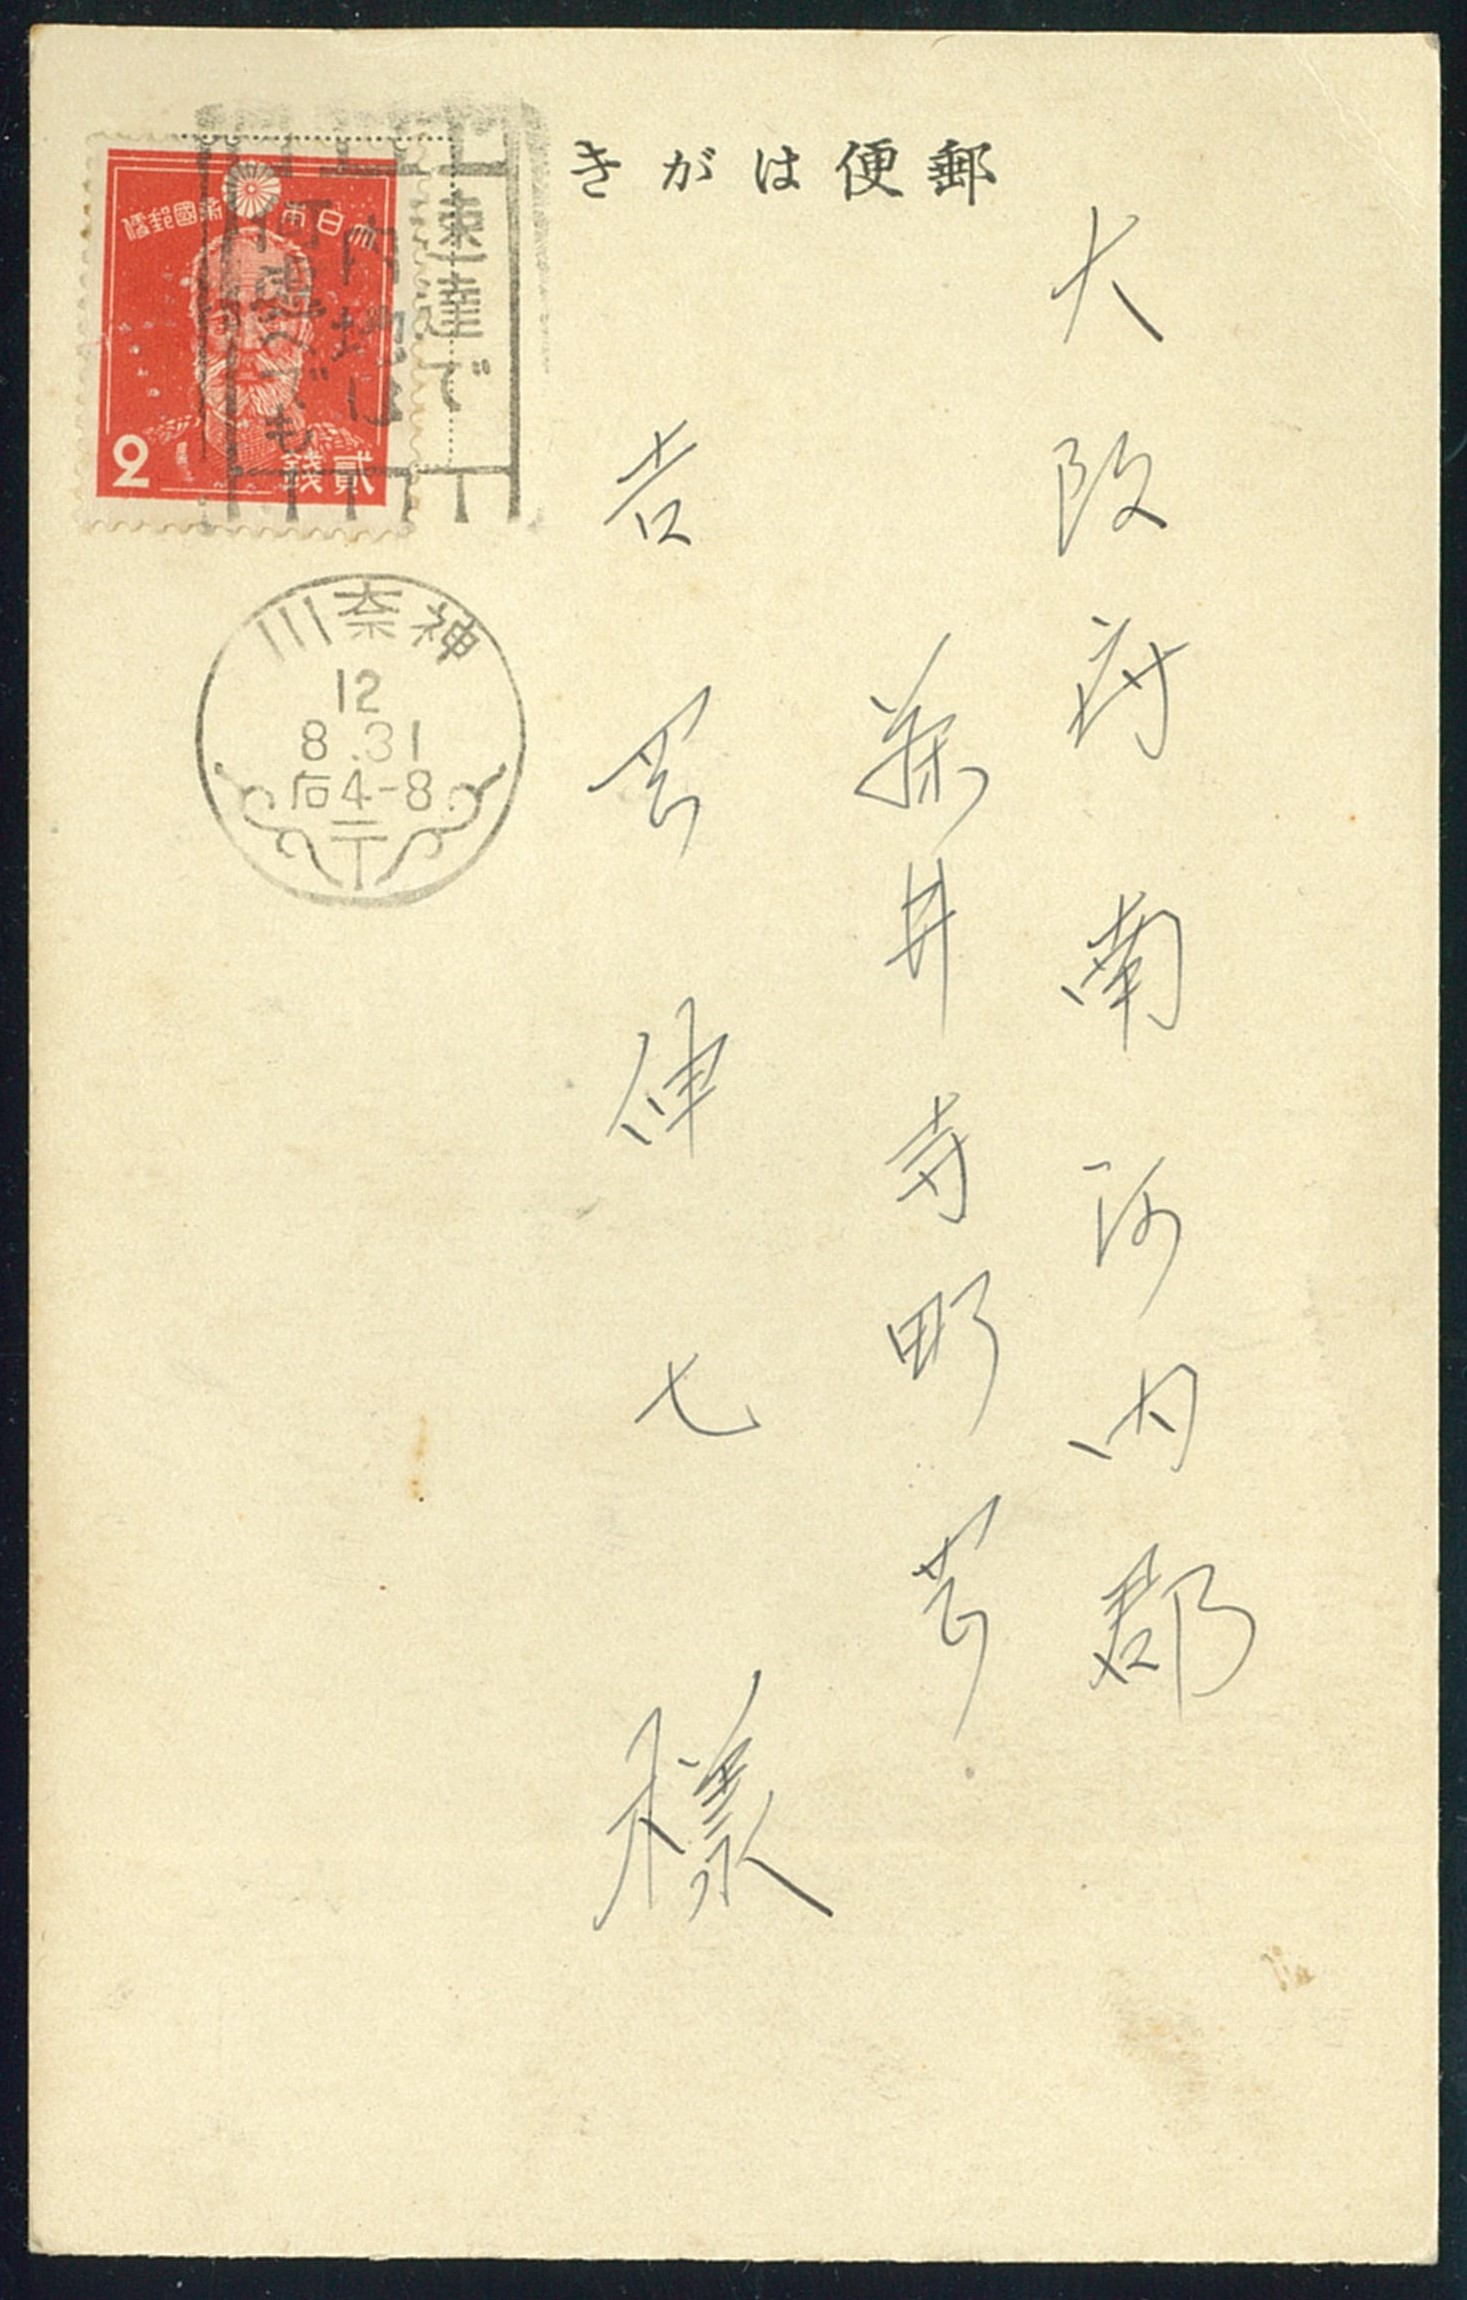 郵便はがき
大阪府南河内郡
藤井寺町岡
吉岡伸七様
大日本帝國郵便
2
貳錢
速達で
内地は
何處へでも
神奈川
12
8.31
后4-8
〒